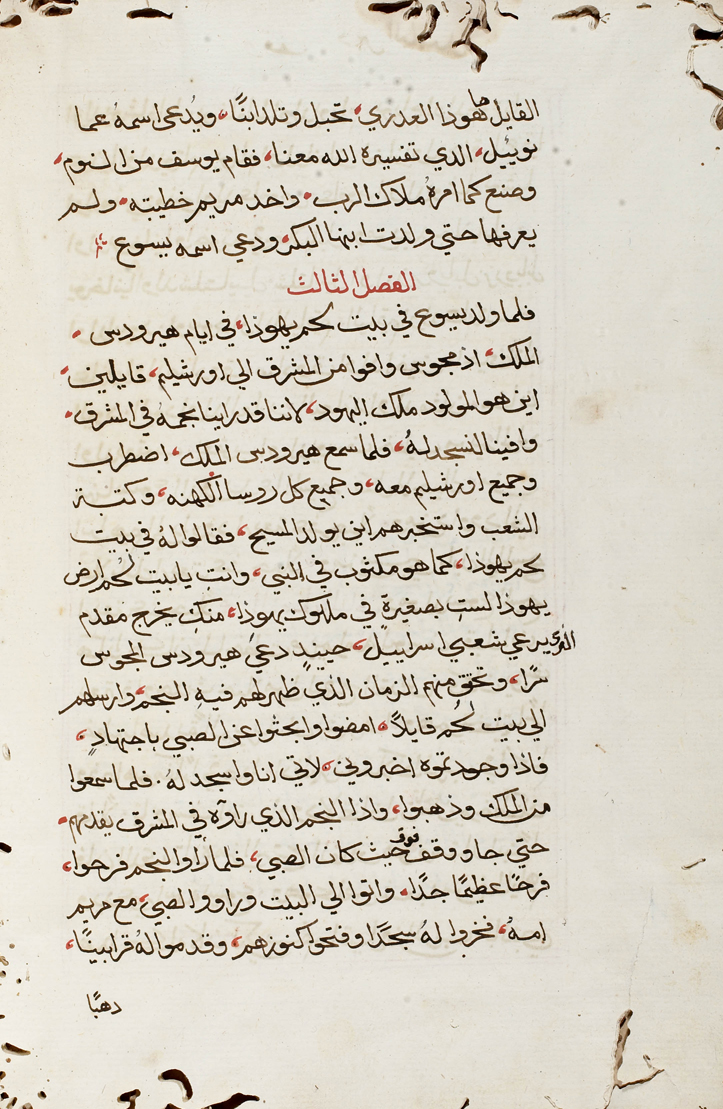 القايل ها هوذا العدري، تحبل وتلد ابنًا، ويُدعي اسمهُ عما
نوييل، الذي تفسيره الله معنا، فقام يوسف من النوم،
وصنع كما امرهُ ملاك الرب، واخد مريم خطيبته، ولم
يعرفها حتي ولدت ابنها البكر، ودعي اسمه يسوع
الفصل الثالث
فلما ولد يسوع في بيت لحم يهوذا، في ايام هيرودس
الملك، اذ مجوس وافوا من المشرق الي اورشليم، قايلين،
اين هو المولود ملك اليهود، لاننا قد راينا نجمهُ في المشرق،
وافينا لنسجد لهُ، فلما سمع هيرودس الملك، اضطرب
وجميع اورشليم معه، وجميع كل روسا الكهنه، وكتبة
الشعب واستخبرهم اين يولد المسيح، فقالوا لهُ في بيت
لحم يهوذا، كما هو مكتوب في النبي، وانتِ يا بيت لحم ارض
يهوذا لستِ بصغيرةٍ في ملوك يهوذا، منكِ يخرج مقدم
الذي يرعي شعبي اسراييل، حينيدٍ دعي هيرودس المجوس
سرًا، وتحقق منهم الزمان الذي ظهر لهم فيهِ النجم، وارسلهم
الي بيت لحُم قايلاً، امضوا وابحثوا عن الصبي باجتهادٍ،
فاذا وجدتموه اخبروني، لاتي انا واسجد لهُ. فلما سمعوا
من الملك وذهبوا، واذا النجم الذي راوه في المشرق يقدمهم،
حتي جا ووقف فوق حيث كان الصبي، فلما راوا النجم فرحوا،
فرحًا عظيمًا جدًا، واتوا الي البيت وراوا الصبي، مع مريم
امهُ، فخروا لهُ سجدًا وفتحوا كنوزهم، وقدموا لهُ قرابينًا،
دهبًا